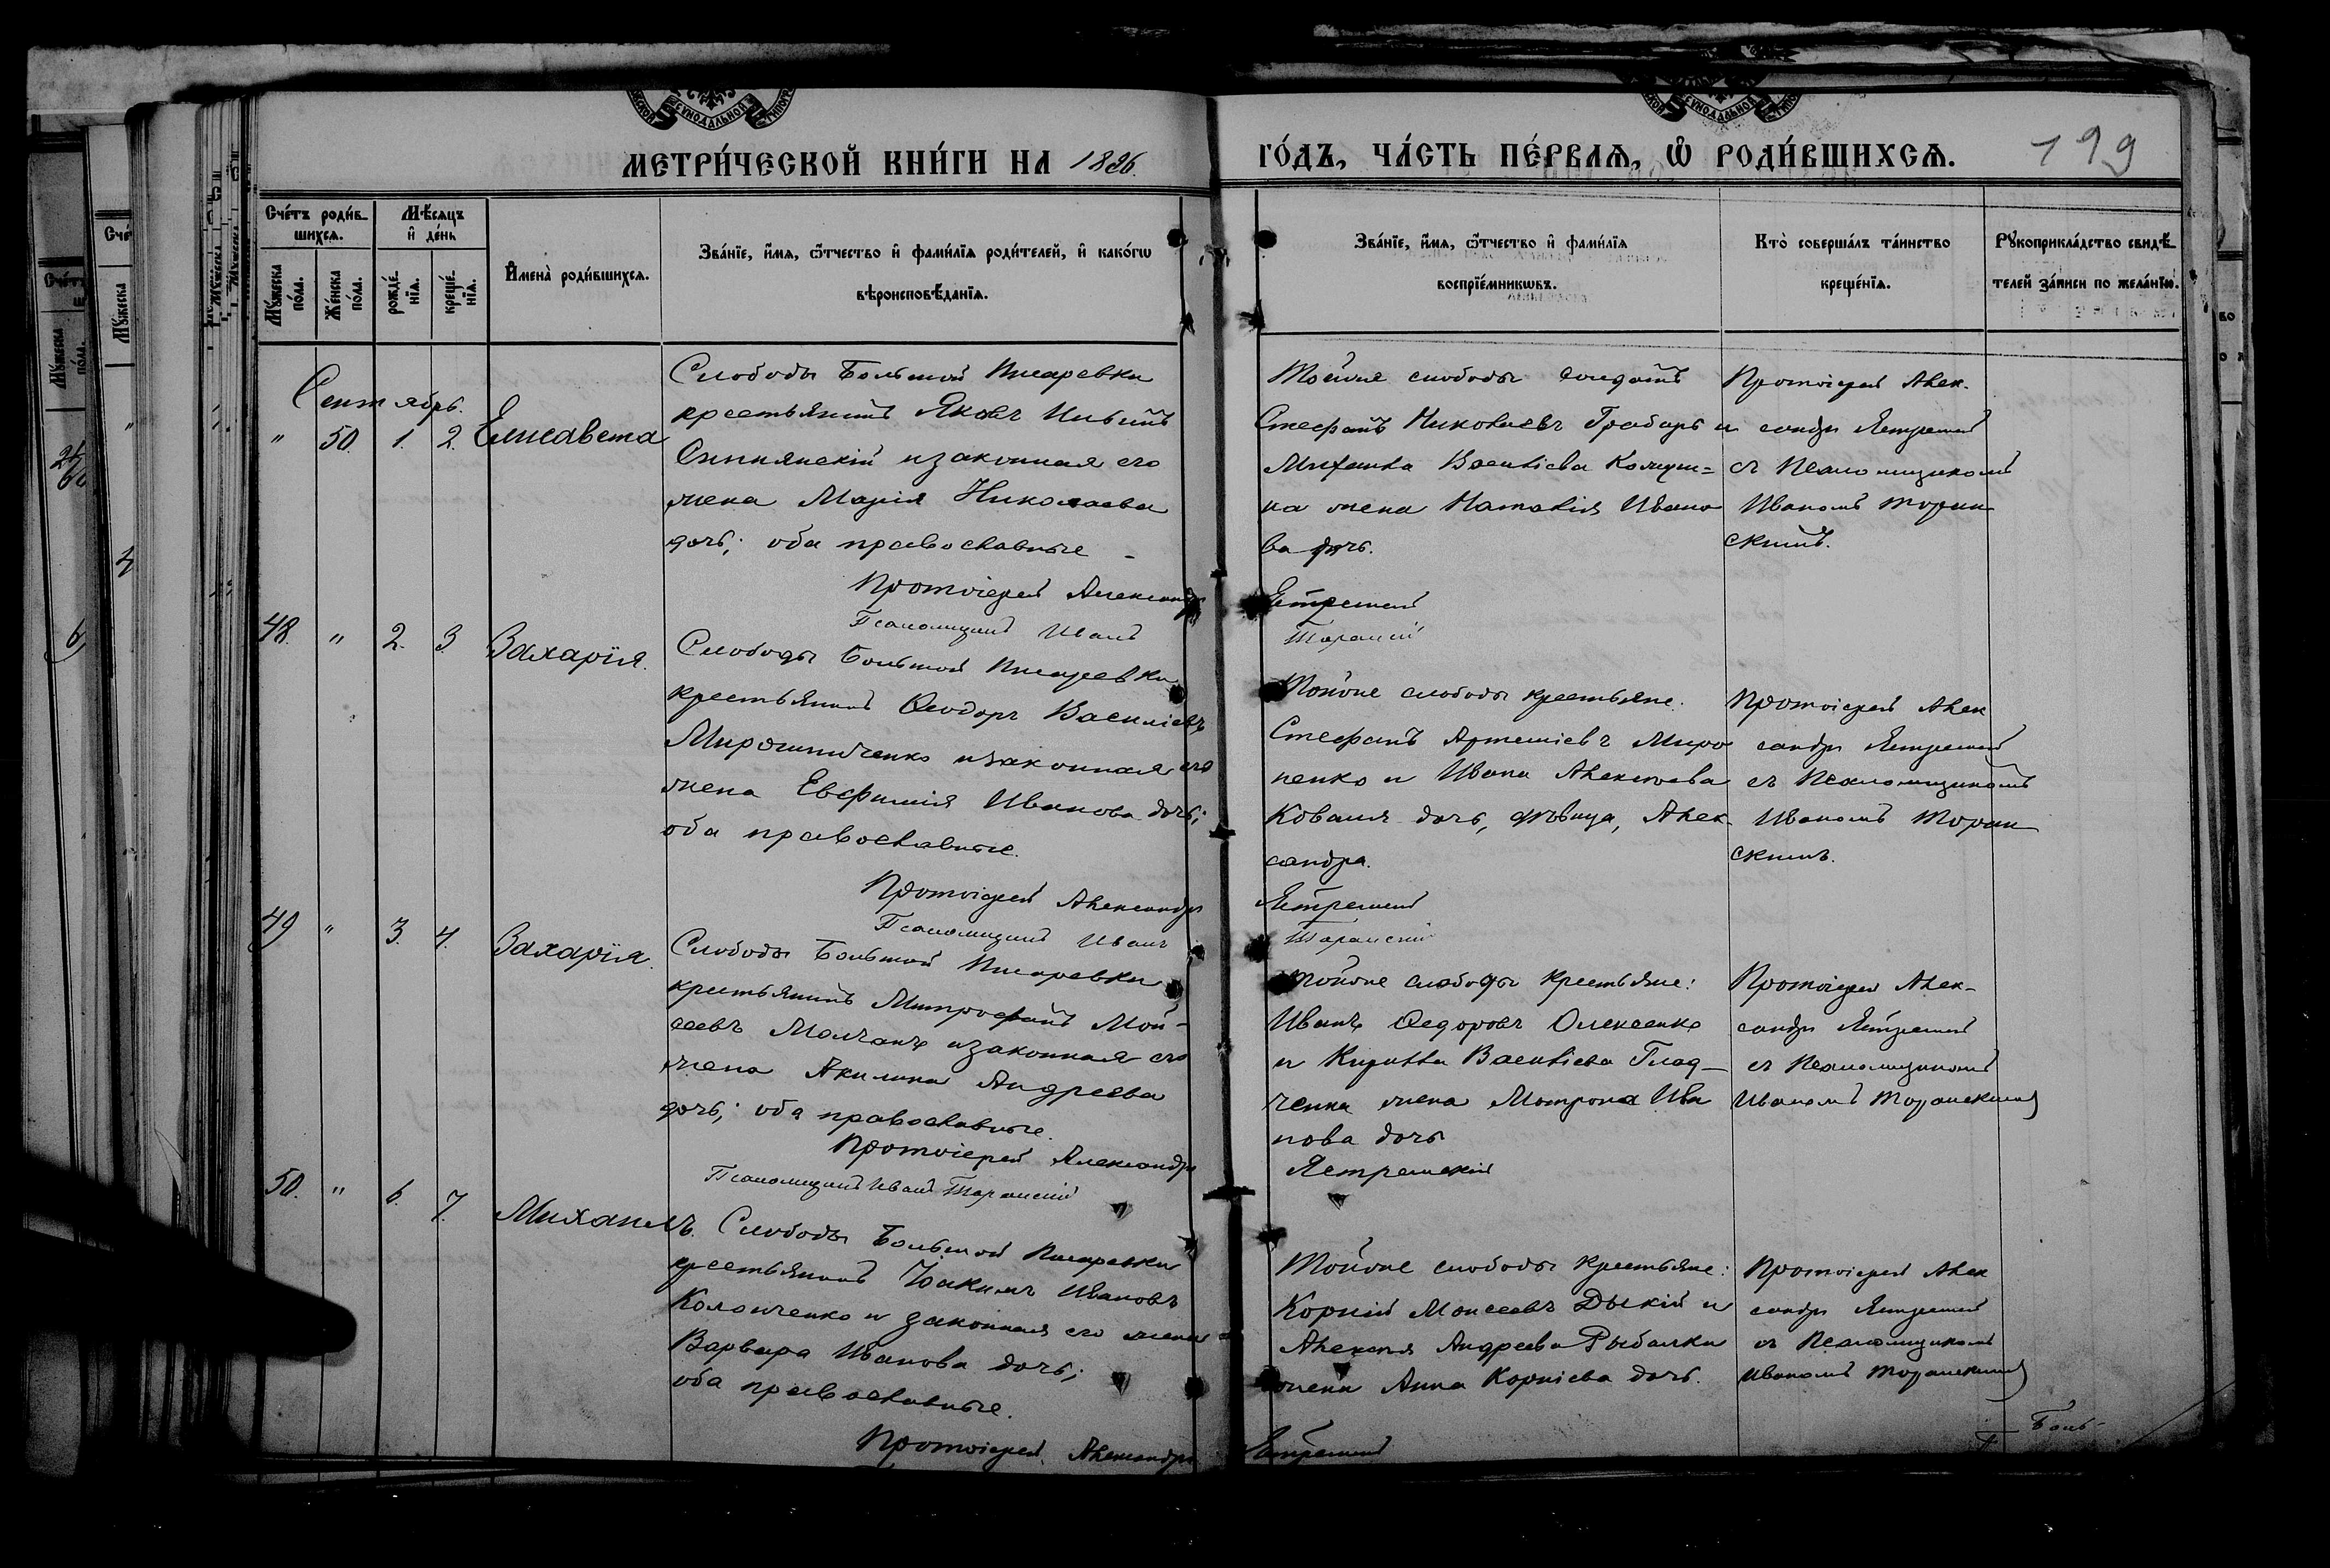 МЕТРИ́ЧЕСКОЙ КНИ́ГИ НА 1896.
ГО́ДЪ, ЧА́СТЬ ПЕ́РВАЯ, Ѽ РОДИ́ВШИХСЯ.
199
Сче́тъ роди́в-
шихся.
Мѣ́сяцъ
и де́нь
Мꙋ́жеска
по́ла.
Же́нска
по́ла.
рожде́-
нія.
креще́-
нія.
Имена̀ роди́вшихся.
Зва́ніе, и́мя, ѻ҆́тчество и҆ фами́лія роди́телей, и҆ како́гѡ
вѣроисповѣ́данія.
Зва́ніе, и́мя, ѻ҆́тчество и҆ фами́лія
воспріе́мникѡвъ.
Кто̀ соверша́лъ та́инство
креще́нія.
Рꙋкоприкла́дство свидѣ́-
телей за́писи по жела́нію.
Сентябрь.
" 50. 1. 2. Елисавета
Слободы Большой Писаревки
крестьянинъ Яковъ
и законная его
жена Марія Николаева
дочь; оба православные
Протоіерей Александръ
Псаломщикъ Иванъ
Тойже слободы солдатъ
Стефанъ Николаевъ Грабарь и
Михаила Василіева
жена Наталія Ивано
ва дочь.
Ястремскій
Торанскій
Протоіерей Алек-
сандръ Ястремскій
съ Псаломщикомъ
Иваномъ Торан
скимъ.
48. " 2. 3. Захарія.
Слободы Большой Писаревки
крестьянинъ Ѳеодоръ Василіевъ
Мирошниченко и законная его
жена Евфимія Иванова дочь;
оба православные.
Протоіерей Александръ
Псаломщикъ Иванъ
Тойже слободы крестьяне:
Стефанъ Артеміевъ Миро
ненко и Ивана Алексѣева
Коваля дочь, дѣвица, Алек-
сандра.
Ястремскій
Торанскій
Протоіерей Алек
сандръ Ястремскій
съ Псаломщикомъ
Иваномъ Торан
скимъ.
49 " 3. 4. Захарія.
Слободы Большой Писаревки
крестьянинъ Митрофанъ Мои-
сеевъ Молчанъ и законная его
жена Акилина Андреева
дочь; оба православные.
Протоіерей Александръ
Псаломщикъ Иванъ Торанскій
Тойже слободы крестьяне:
Иванъ Ѳедоровъ Олексенко
и Кирилла Василіева Глад-
ченка жена Матрона Ива
нова дочь
Ястремскій
Протоіерей Алек-
сандръ Ястремскій
съ Псаломщикомъ
Иваномъ Торанскимъ
50. " 6. 7. Михаилъ.
Слободы Большой Писаревки
крестьянинъ Іоакимъ Ивановъ
и законная его жена
Варвара Иванова дочь;
оба православные.
Протоіерей Александръ
Тойже слободы крестьяне:
Корній Моисеевъ Дыкій и
Алексѣя Андреева Рыбалки
жена Анна Корніева дочь.
Ястремскій
Протоіерей Алек
сандръ Ястремскій
съ Псаломщикомъ
Иваномъ Торанскимъ
Боль-